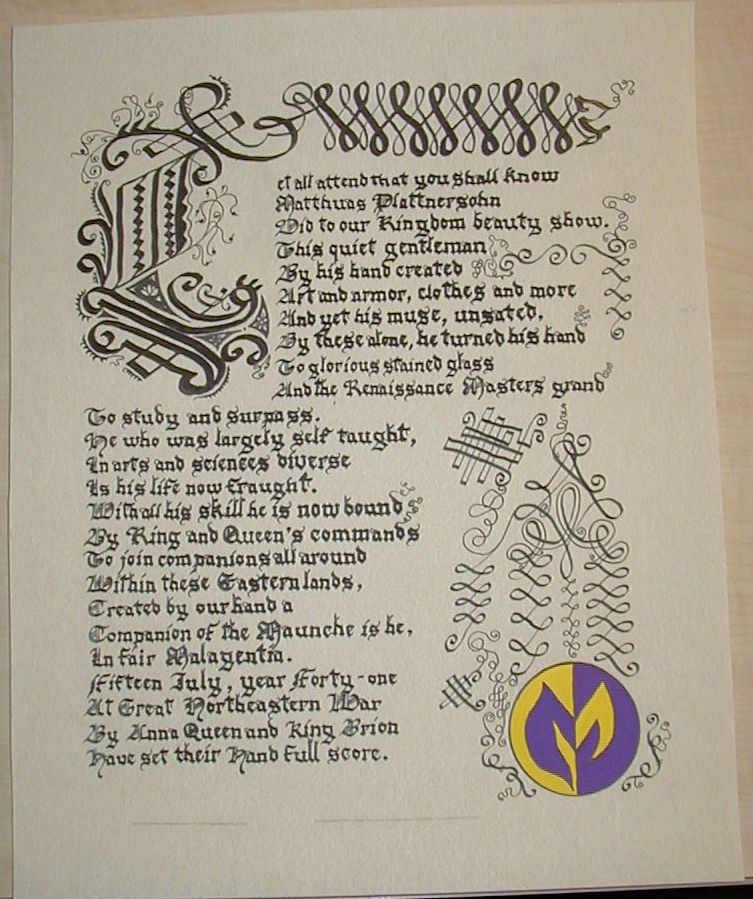 Let all attend that you shall know
Matthias Plattnersohn
Did to our Kingdom beauty show.
This quiet gentleman
By his hand created
Art and armor, clothes and more
And yet his muse, unsated,
By these alone, he turned his hand
To glorious stained glass
And the Renaissance Masters grand
To study and surpass.
He who was largely self taught,
In arts and sciences diverse
Is his life now fraught.
With all his skill he is now bound
By King and Queen's commands
To join companions all around
Within these Eastern lands,
Created by our hand a
Companion of the Maunche is he,
In fair Malagentia.
Fifteen July, year Forty-one
At Great Northeastern War
By Anna Queen and King Brion
Have set their Hand full score.